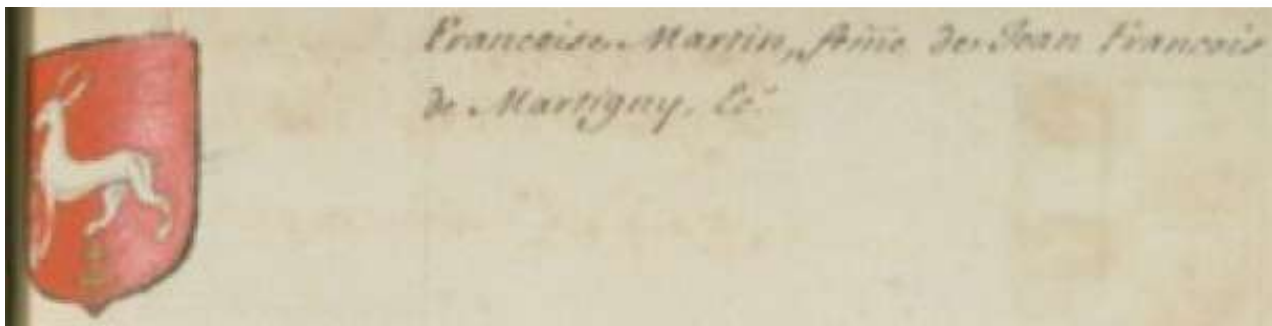 Francoise Martin, fem̃e de Jean Francois
de Martigny. Ec.